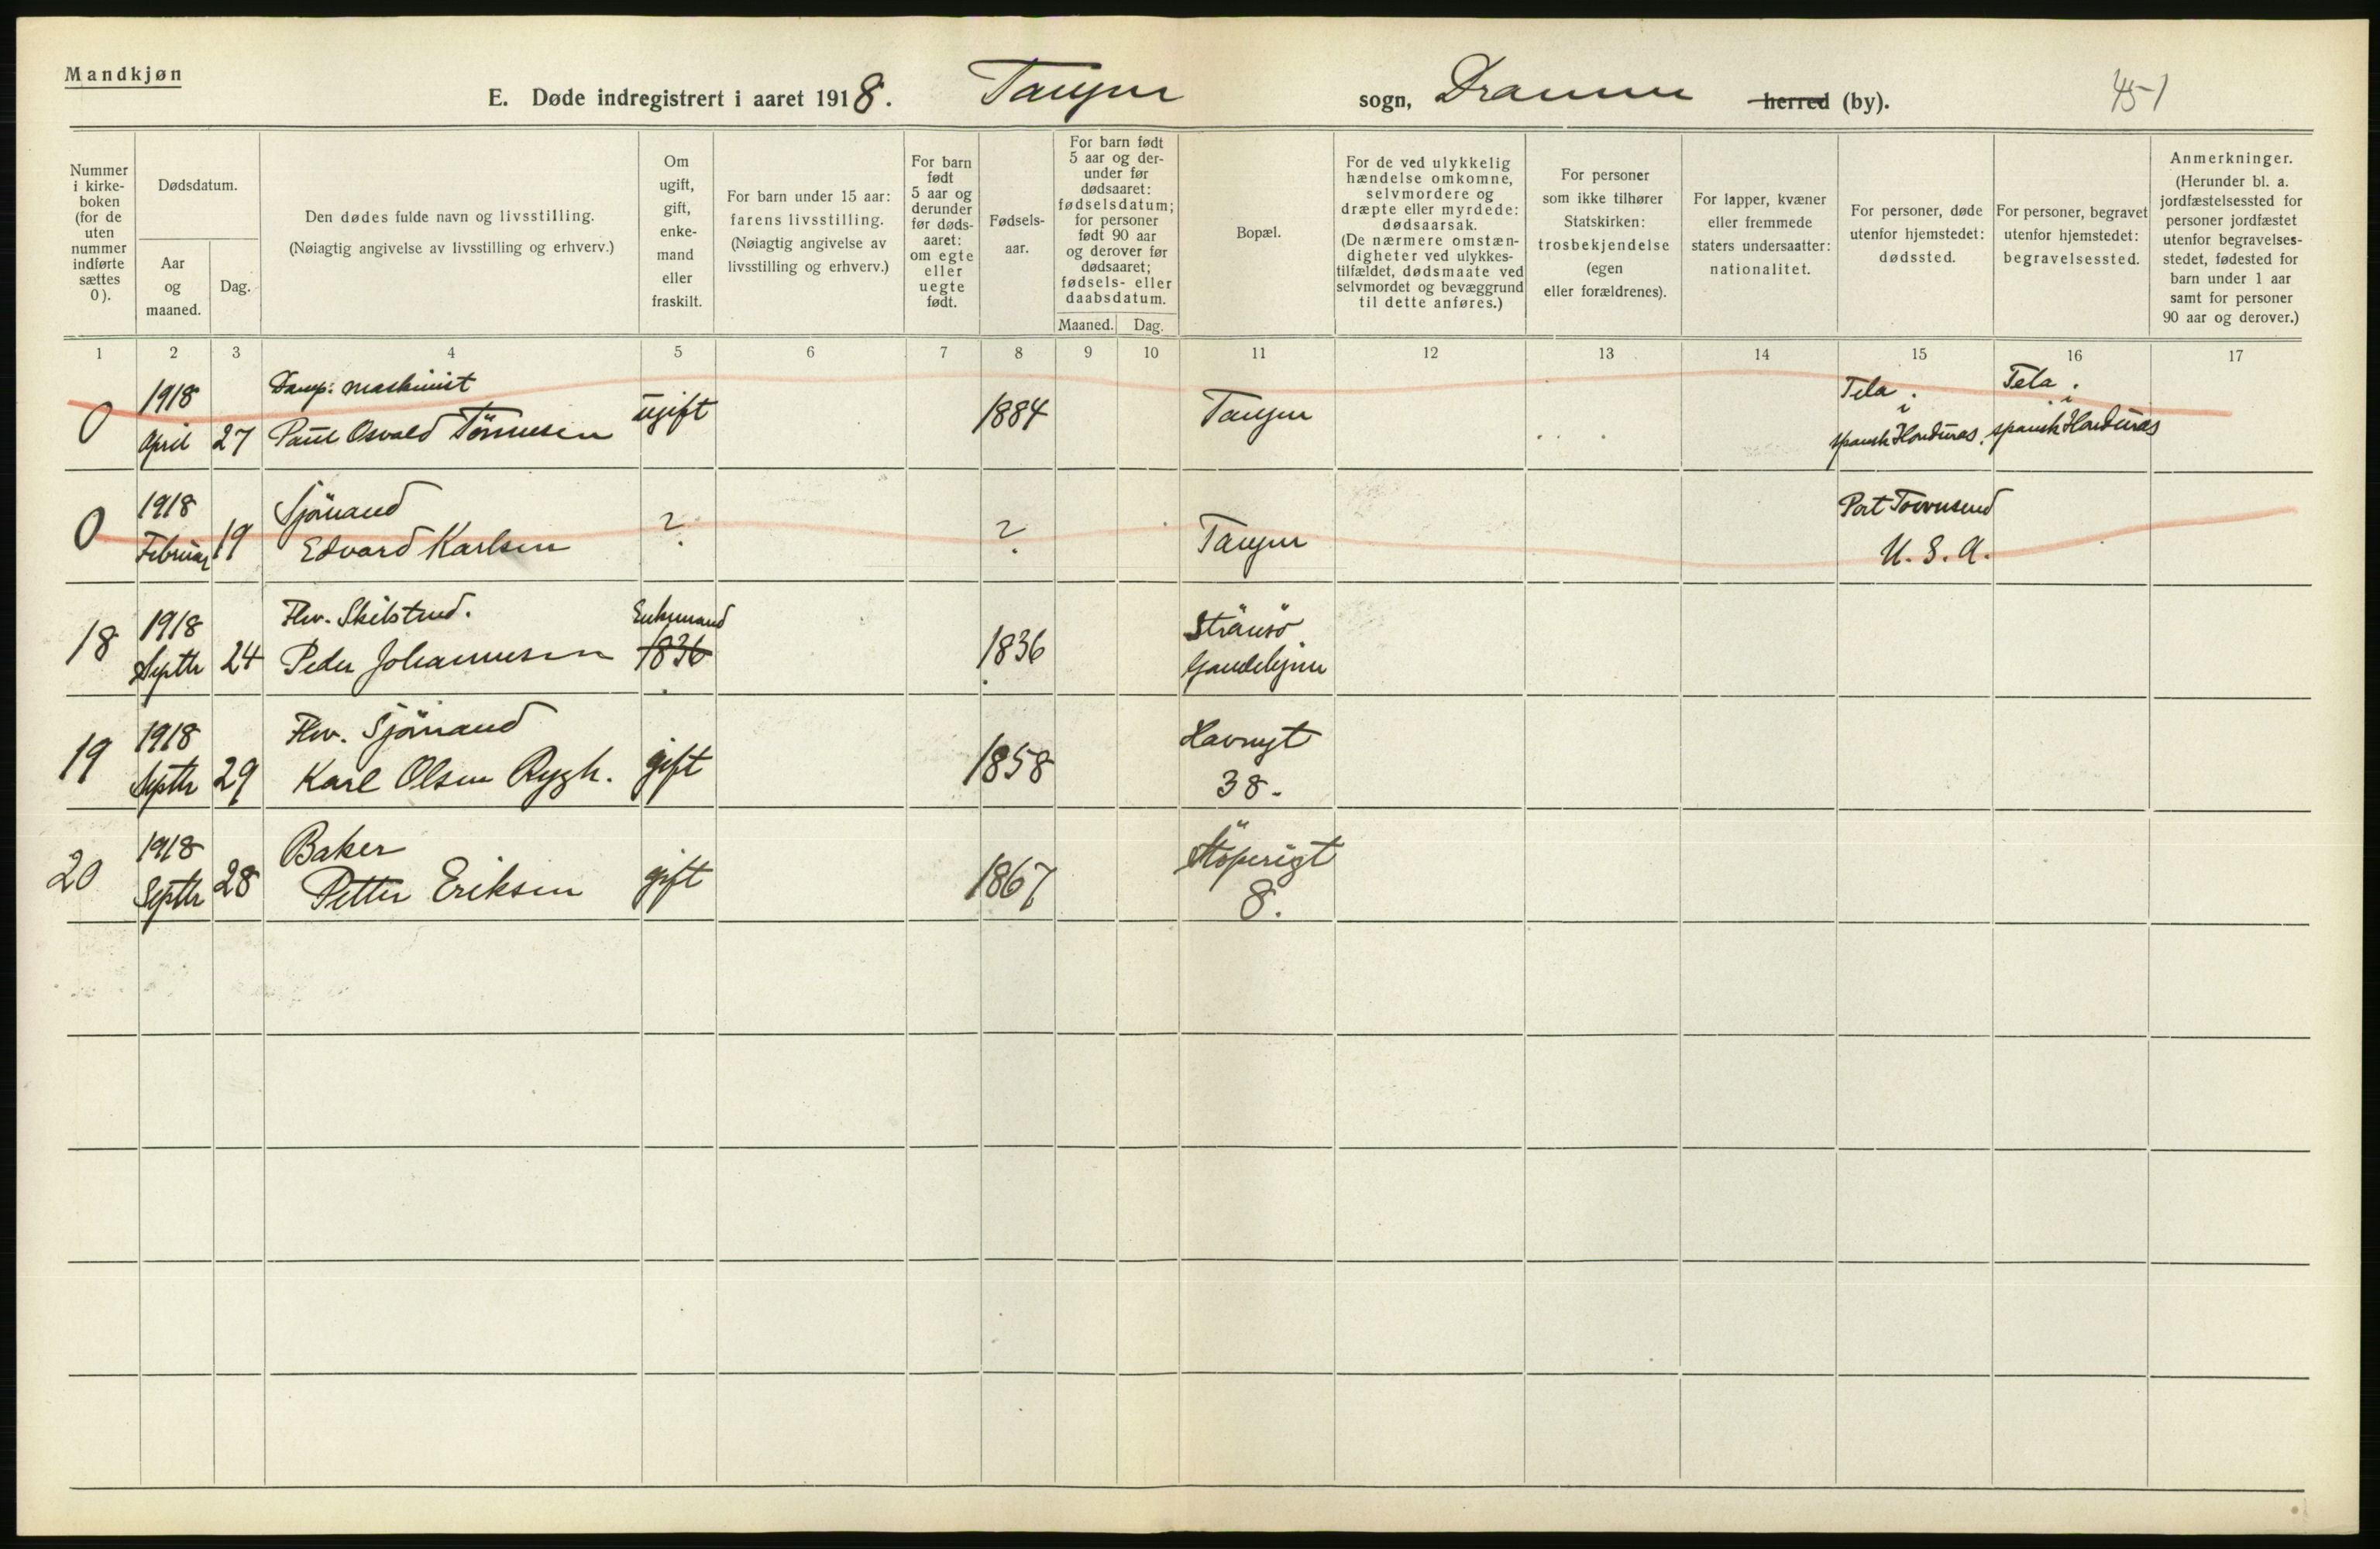 Mandkjøn
E. Døde indregistrert i aaret 1918. Tangen sogn, Drammen herred (by). 451
Nummer i kirkeboken (for de uten nummer indførte sættes 0).
Dødsdatum.
Aar og maaned.
Dag.
Den dødes fulde navn og livsstilling.
(Nøiagtig angivelse av livsstilling og erhverv.)
Om ugift, gift, enkemand eller fraskilt.
For barn under 15 aar: farens livsstilling.
(Nøiagtig angivelse av livsstilling og erhverv.)
For barn født 5 aar og derunder før dødsaaret: om egte eller uegte født.
Fødselsaar.
For barn født 5 aar og derunder før dødsaaret: fødselsdatum; for personer født 90 aar og derover før dødsaaret; fødsels- eller daabsdatum.
Maaned.
Dag.
Bopæl.
For de ved ulykkelig hændelse omkomne, selvmordere og dræpte eller myrdede: dødsaarsak.
(De nærmere omstændigheter ved ulykkestilfældet, dødsmaate ved selvmordet og bevæggrund til dette anføres.)
For personer som ikke tilhører Statskirken: trosbekjendelse (egen eller forældrenes).
For lapper, kvæner eller fremmede staters undersaatter: nationalitet.
For personer, døde utenfor hjemstedet: dødssted.
For personer, begravet utenfor hjemstedet: begravelsessted.
Anmerkninger.
(Herunder bl. a. jordfæstelsessted for personer jordfæstet utenfor begravelsesstedet, fødested for barn under 1 aar samt for personer 90 aar og derover.)
1 2 3 4 5 6 7 8 9 10 11 12 13 14 15 16 17
1918 Damp: maskinist Tela. Tela.
0 ugift 1884 Tangen i i
April 27 Paul Osvald Tönnesen spansk Honduras. spansk Honduras
1918 Sjömand Port Townsend
0 Februar 19 Edvard Karlsen ? ? Tangen U. S. A.
1918 Fhv. Skilstred. Enkemand Strömsö
18 Septbr 24 Peder Johannesen 1836 1836 Gamlehjem
1918 Fhv. Sjömand Havnegt
19 Septbr 29 Karl Olsen Rygh. gift 1858 38.
1918 Baker Støperigt
20 Septbr 28 Petter Eriksen gift 1867 8.